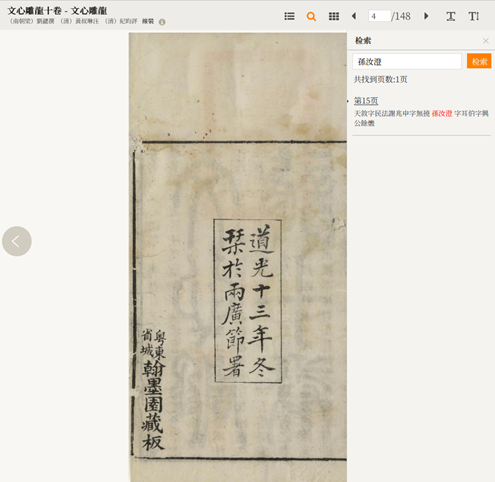 文心雕龍十卷 - 文心雕龍
（南朝梁）劉勰撰 （清）黃叔琳注 （清）紀昀評 線裝
4 /148
检索
孫汝澄
检索
共找到页数:1页
第15页
天啟字民法謝兆申字無撓 孫汝澄 字耳伯字興
公餘懲
道光十三年冬
栞於兩廣節署
粵東
省城
翰墨園藏板